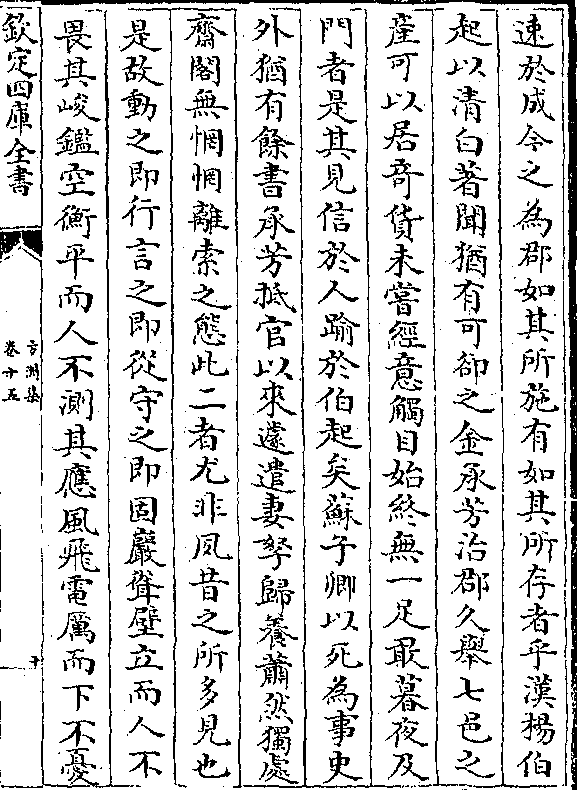 速於成今之為郡如其所施有如其所存者乎漢楊伯
起以清白著聞猶有可卻之金承芳治郡久舉七邑之
產可以居奇貨未嘗經意觸目始終無一足敢暮夜及
門者是其見信於人踰於伯起矣蘇子卿以死為事史
外猶有餘書承芳抵官以來遽遣妻孥歸養蕭然獨處
齋閣無惘惘離索之態此二者尤非夙昔之所多見也
是故動之即行言之即從守之即固巖聳壁立而人不
畏其峻鑑空衡平而人不測其應風飛電厲而下不憂
欽定四庫全書
方洲集
卷十五
十